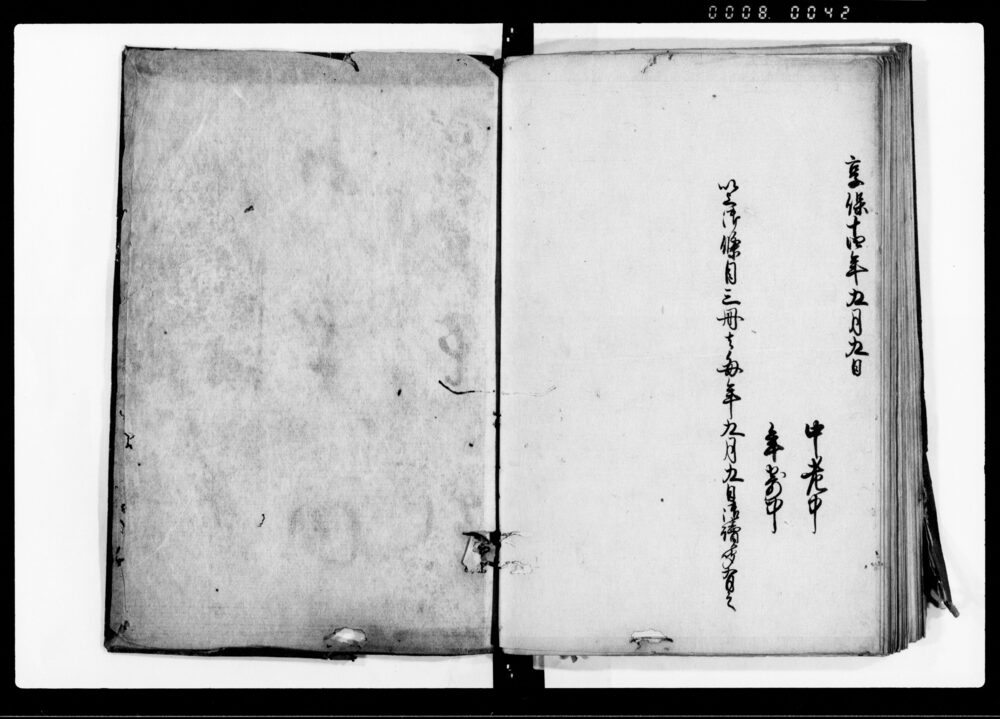 0008 0042
享保十四年九月九日
中老中
年寄中
以上御條目三冊ハ毎年九月九日御讀せ有之